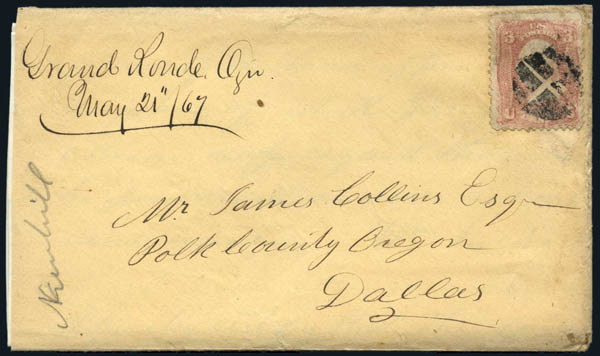 Grand Ronde. Ogn.
May 21"/67
Mr James Collins Esqr
Polk County Oregon
Dallas
3
U.S.